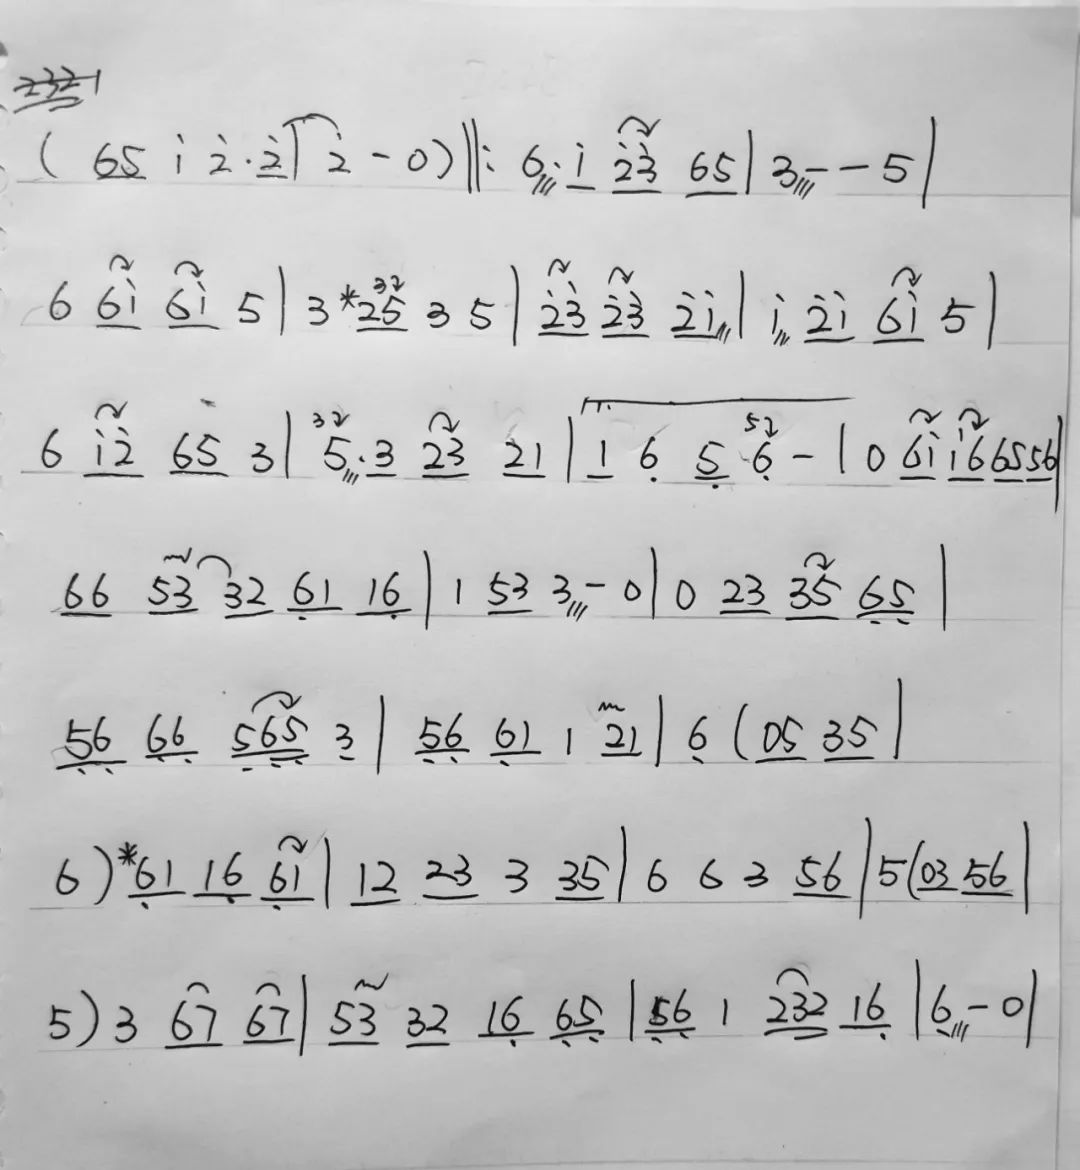 2321
( 65 i 2̇ · 2̇ | 2̇ - 0 ) ‖: 6 · i 2̇3̇ 65 | 3 - - 5 |
6 6i 6i 5 | 3 *25 32 3 5 | 2̇3̇ 2̇3̇ 2̇i | i 2̇i 6i 5 |
6 i2̇ 65 3 | 32 5 · 3 23 21 | 1. 1 6̣ 5̣ 52 6̣ - | 0 6i i6 65 56 |
66 53 32 6̣1 16̣ | 1 53 3 - 0 | 0 23 35 6̣5̣ |
5̣6̣ 6̣6̣ 5̣6̣5̣ 3̣ | 5̣6̣ 6̣1 1 21 | 6̣ ( 05 35 |
6 ) *6̣1 16̣ 6̣1 | 12 23 3 35 | 6 6 3 56 | 5 ( 03 56 |
5 ) 3 67 67 | 53 32 16̣ 6̣5̣ | 5̣6̣ 1 232 16̣ | 6̣ - 0 |